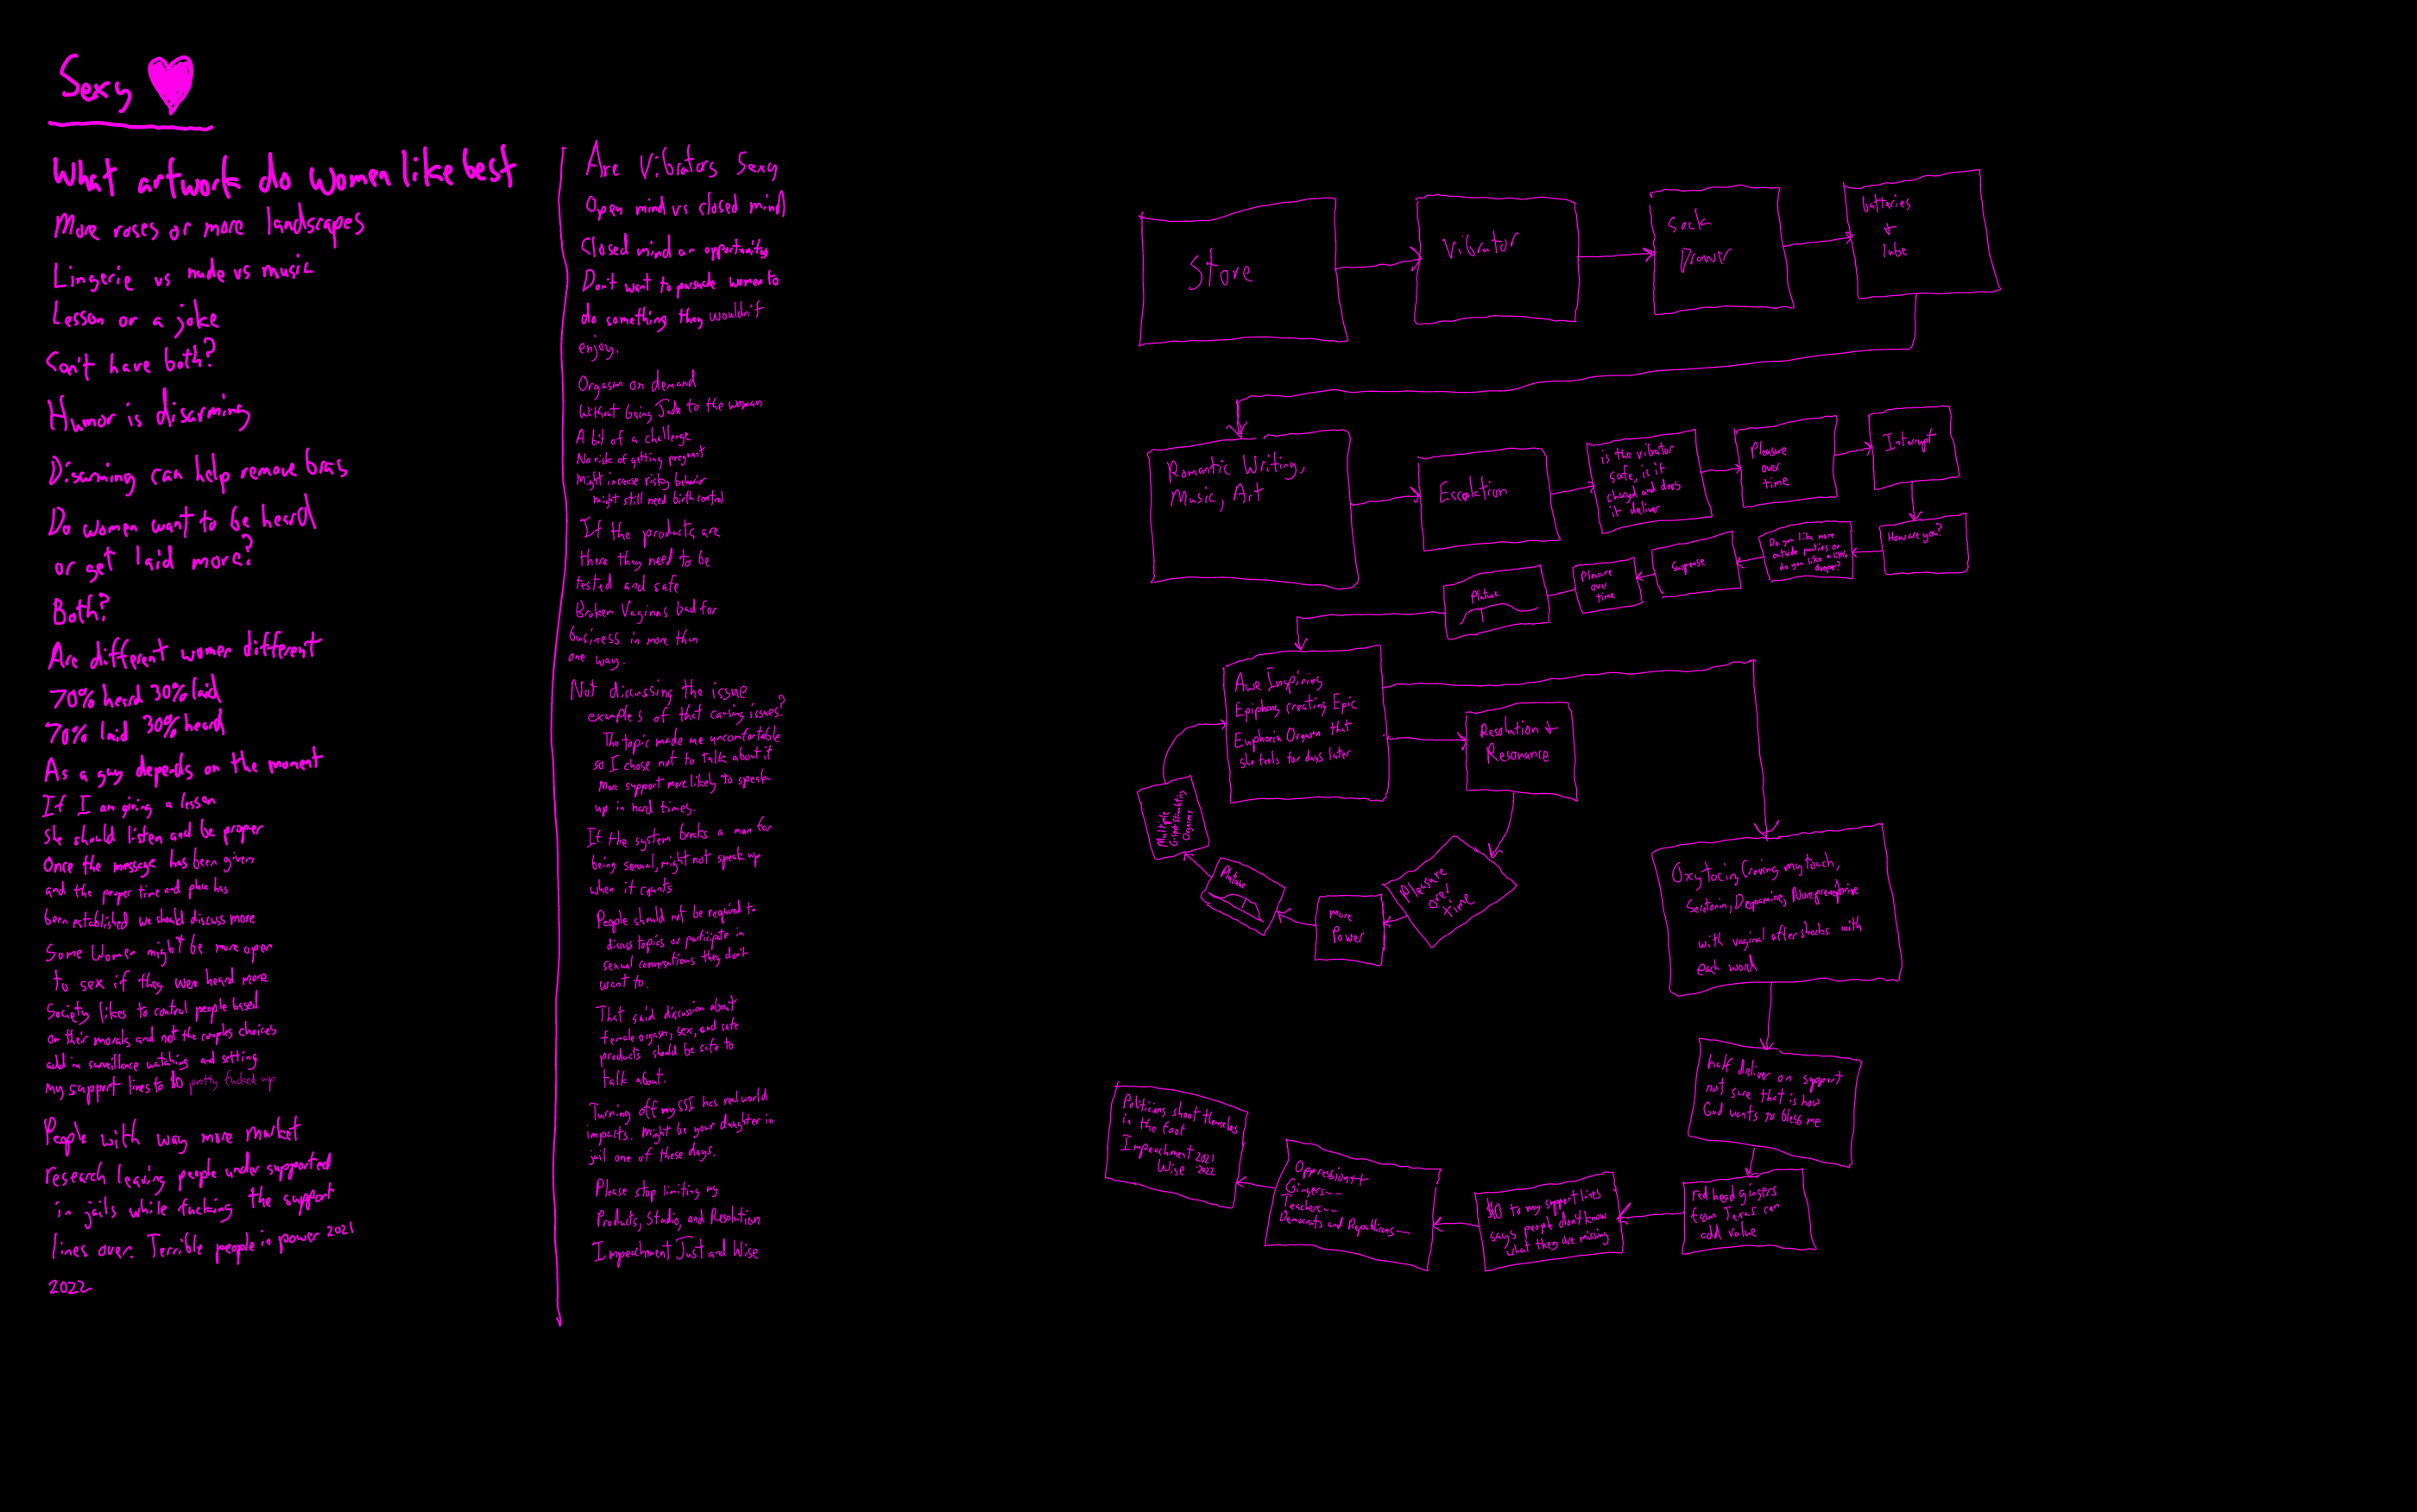 Sexy
What artwork do women like best
More roses or more landscapes
Lingerie vs nude vs music
Lesson or a joke
Son't have both?
Humor is disarming
Disarming can help remove bras
Do women want to be heard
or get laid more?
Both?
Are different women different
70% heard 30% laid
70% laid 30% heard
As a guy depends on the moment
If I am giving a lesson
she should listen and be proper
Once the message has been given
and the proper time and place has
been established we should discuss more
Some Women might be more open
to sex if they were heard more
Society likes to control people based
on their morals and not the couples choices
add in surveillance watching and setting
my support lines to $0 pretty fucked up
People with way more market
research leaving people under supported
in jails while fucking the support
lines over. Terrible people in power 2021
2022
Are Vibrators Sexy
Open mind vs closed mind
Closed mind an opportunity
Don't want to persuade women to
do something they wouldn't
enjoy.
Orgasm on demand
Without being to the woman
A bit of a challenge
No risk of getting pregnant
Might increase risky behavior
might still need birth control
If the products are
there they need to be
tested and safe
Broken Vaginas bad for
business in more than
one way.
Not discussing the issue
examples of that causing issues?
The topic made me uncomfortable
so I chose not to talk about it
More support more likely to speak
up in hard times.
If the system breaks a man for
being sexual, might not speak up
when it counts
People should not be required to
discuss topics or participate in
sexual conversations they don't
want to.
That said discussion about
female orgasm, sex, and safe
products should be safe to
talk about.
Turning off my SSI has real world
impacts. Might be your daughter in
jail one of these days.
Please stop limiting my
Products, Studio, and Resolution
Impeachment Just and Wise
Store
Vibrator
Sock
Drawer
batteries
+
lube
Romantic Writing,
Music, Art
Escalation
is the vibrator
safe, is it
charged and does
it deliver
Pleasure
over
time
Interrupt
How are you?
Do you like more
outside parties or
do you like a little
deeper?
Suspense
Pleasure
over
time
Platuae
Awe Inspiring
Epiphany creating Epic
Euphoria Orgasm that
she feels for days later
Resolution +
Resonance
Pleasure
over
time
More
Power
Platuae
Multiple
Orgasms
Oxytocin, Craving my touch,
Serotonin, Dopamine, Norepinephrine
with vaginal aftershocks with
each word
half deliver on support
not sure that is how
God wants to bless me
red head gingers
from Texas can
add value
$0 to my support lines
says people don't know
what they are missing
Oppression++
Gingers--
Teachers--
Democrats and Republicans--
Politicians shoot themselves
in the foot
Impeachment 2021
Wise 2022